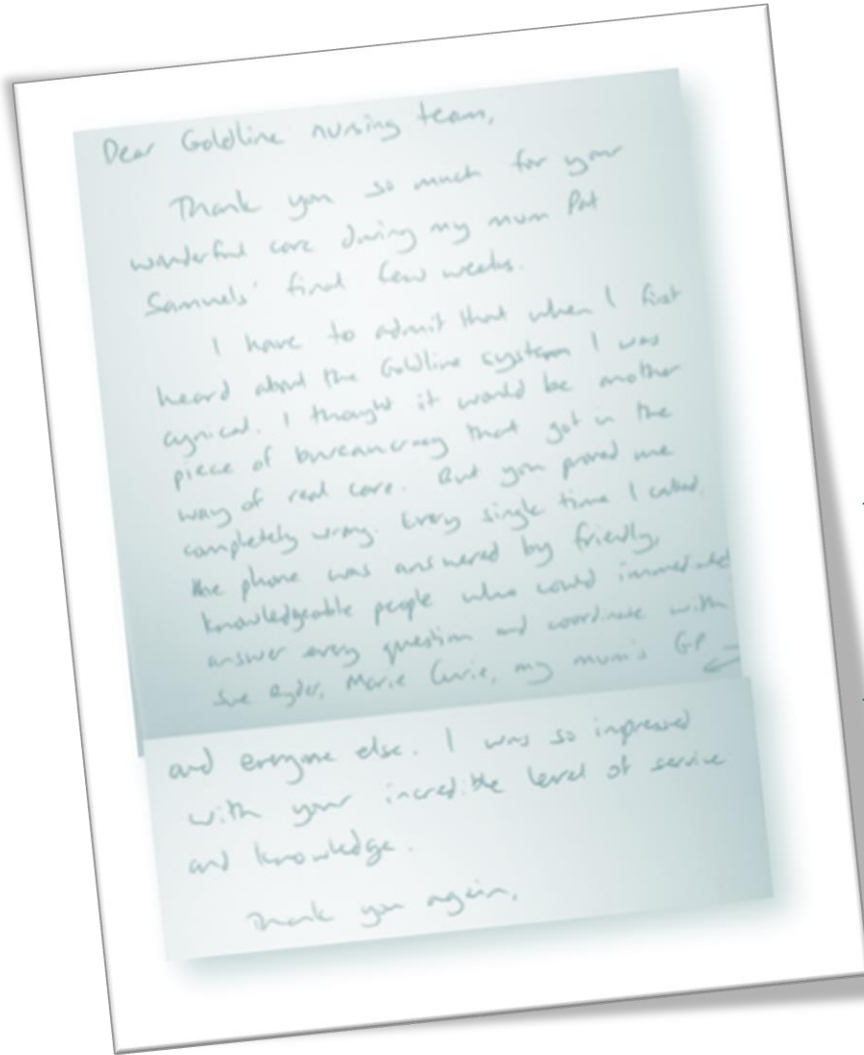 Dear Goldline nursing team,
Thank you so much for your
wonderful care during my mum Pat
Samuels' final few weeks.
I have to admit that when I first
heard about the Goldline system I was
cynical. I thought it would be another
piece of bureaucracy that got in the
way of real care. But you proved me
completely wrong. Every single time I called,
the phone was answered by friendly,
knowledgeable people who could immediately
answer every question and coordinate with
Sue Ryder, Marie Curie, my mum's GP
and everyone else. I was so impressed
with your incredible level of service
and knowledge.
Thank you again,